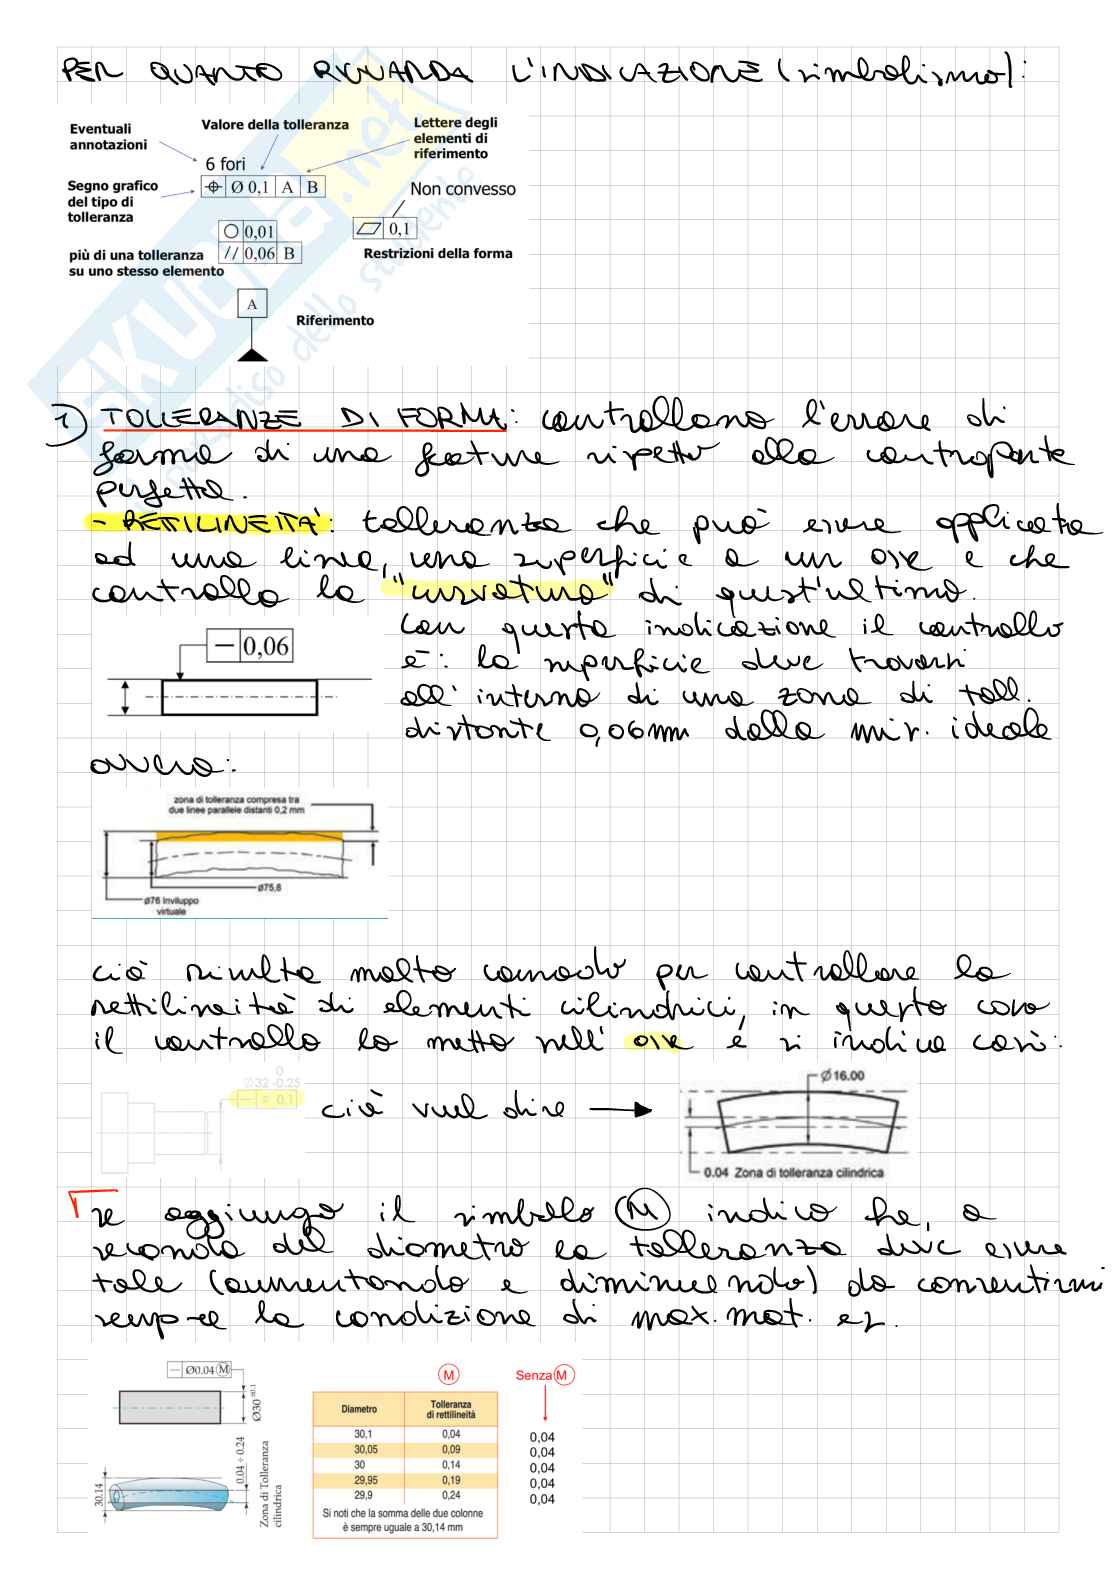 PER QUANTO RIGUARDA L'INDICAZIONE (simbolismo):
Eventuali
annotazioni
Valore della tolleranza
Lettere degli
elementi di
riferimento
6 fori
Segno grafico
del tipo di
tolleranza
⌖ Ø 0,1 A B
Non convesso
▱ 0,1
Restrizioni della forma
○ 0,01
// 0,06 B
più di una tolleranza
su uno stesso elemento
A
Riferimento
SKUOLA.net
paradiso dello studente
1) TOLLERANZE DI FORMA: controllano l'errore di
forma di una feature rispetto alla controparte
perfetta.
- RETTILINEITÀ: tolleranza che può essere applicata
ad una linea, una superficie o un asse e che
controlla la "curvatura" di quest'ultimo.
Con questa indicazione il controllo
è: la superficie deve trovarsi
all'interno di una zona di toll.
distante 0,06mm dalla mis. ideale
— 0,06
ovvero:
zona di tolleranza compresa tra
due linee parallele distanti 0,2 mm
Ø75,8
Ø76 Inviluppo
virtuale
ciò risulta molto comodo per controllare la
rettilineità di elementi cilindrici, in questo caso
il controllo lo metto nell'asse e si indica così:
0
Ø32 -0.25
0.1
ciò vuol dire →
Ø16.00
0.04 Zona di tolleranza cilindrica
se aggiungo il simbolo Ⓜ indico he, a
seconda del diametro la tolleranza deve essere
tale (aumentando e diminuendo) da consentirmi
sempre la condizione di max. mat. es.
— Ø0.04 Ⓜ
Ø30 ±0.1
30,14
0.04 ÷ 0.24
Zona di Tolleranza
cilindrica
Ⓜ
Senza Ⓜ
Diametro
Tolleranza
di rettilineità
30,1 0,04 0,04
30,05 0,09 0,04
30 0,14 0,04
29,95 0,19 0,04
29,9 0,24 0,04
Si noti che la somma delle due colonne
è sempre uguale a 30,14 mm